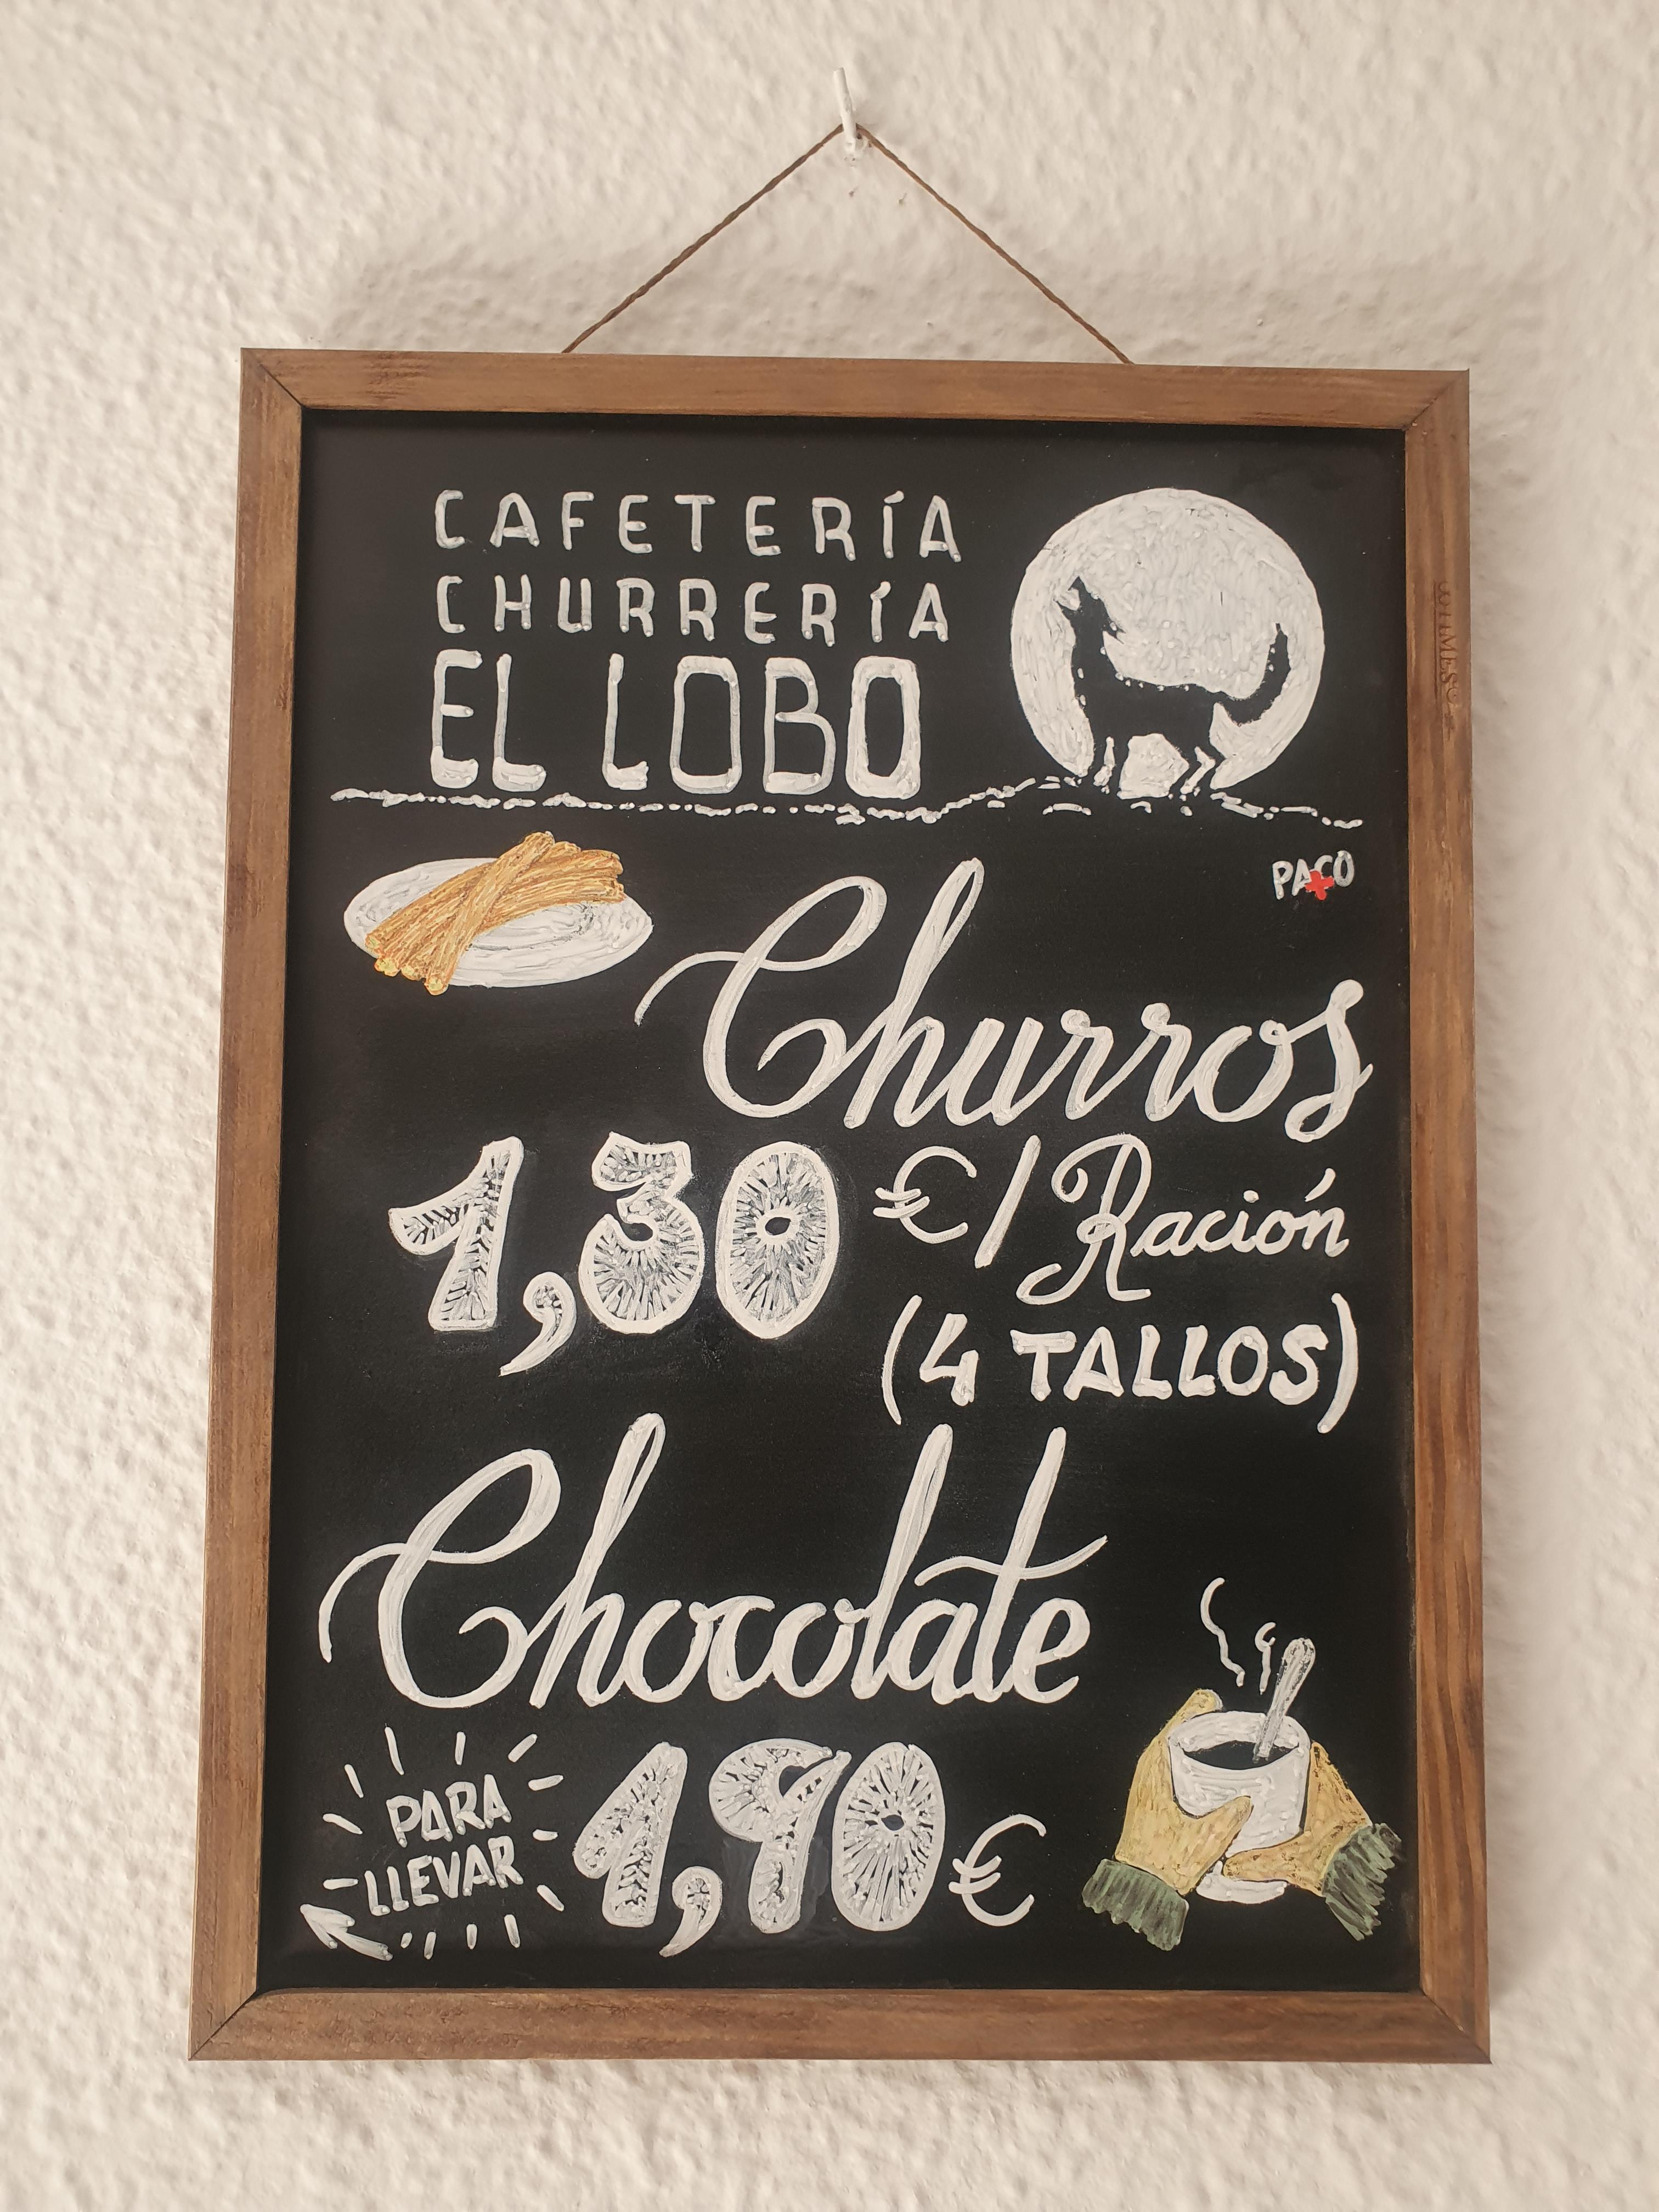 CAFETERÍA
CHURRERÍA
EL LOBO
PACO
Churros
1,30 €/Ración
(4 TALLOS)
Chocolate
PARA
LLEVAR
1,90 €